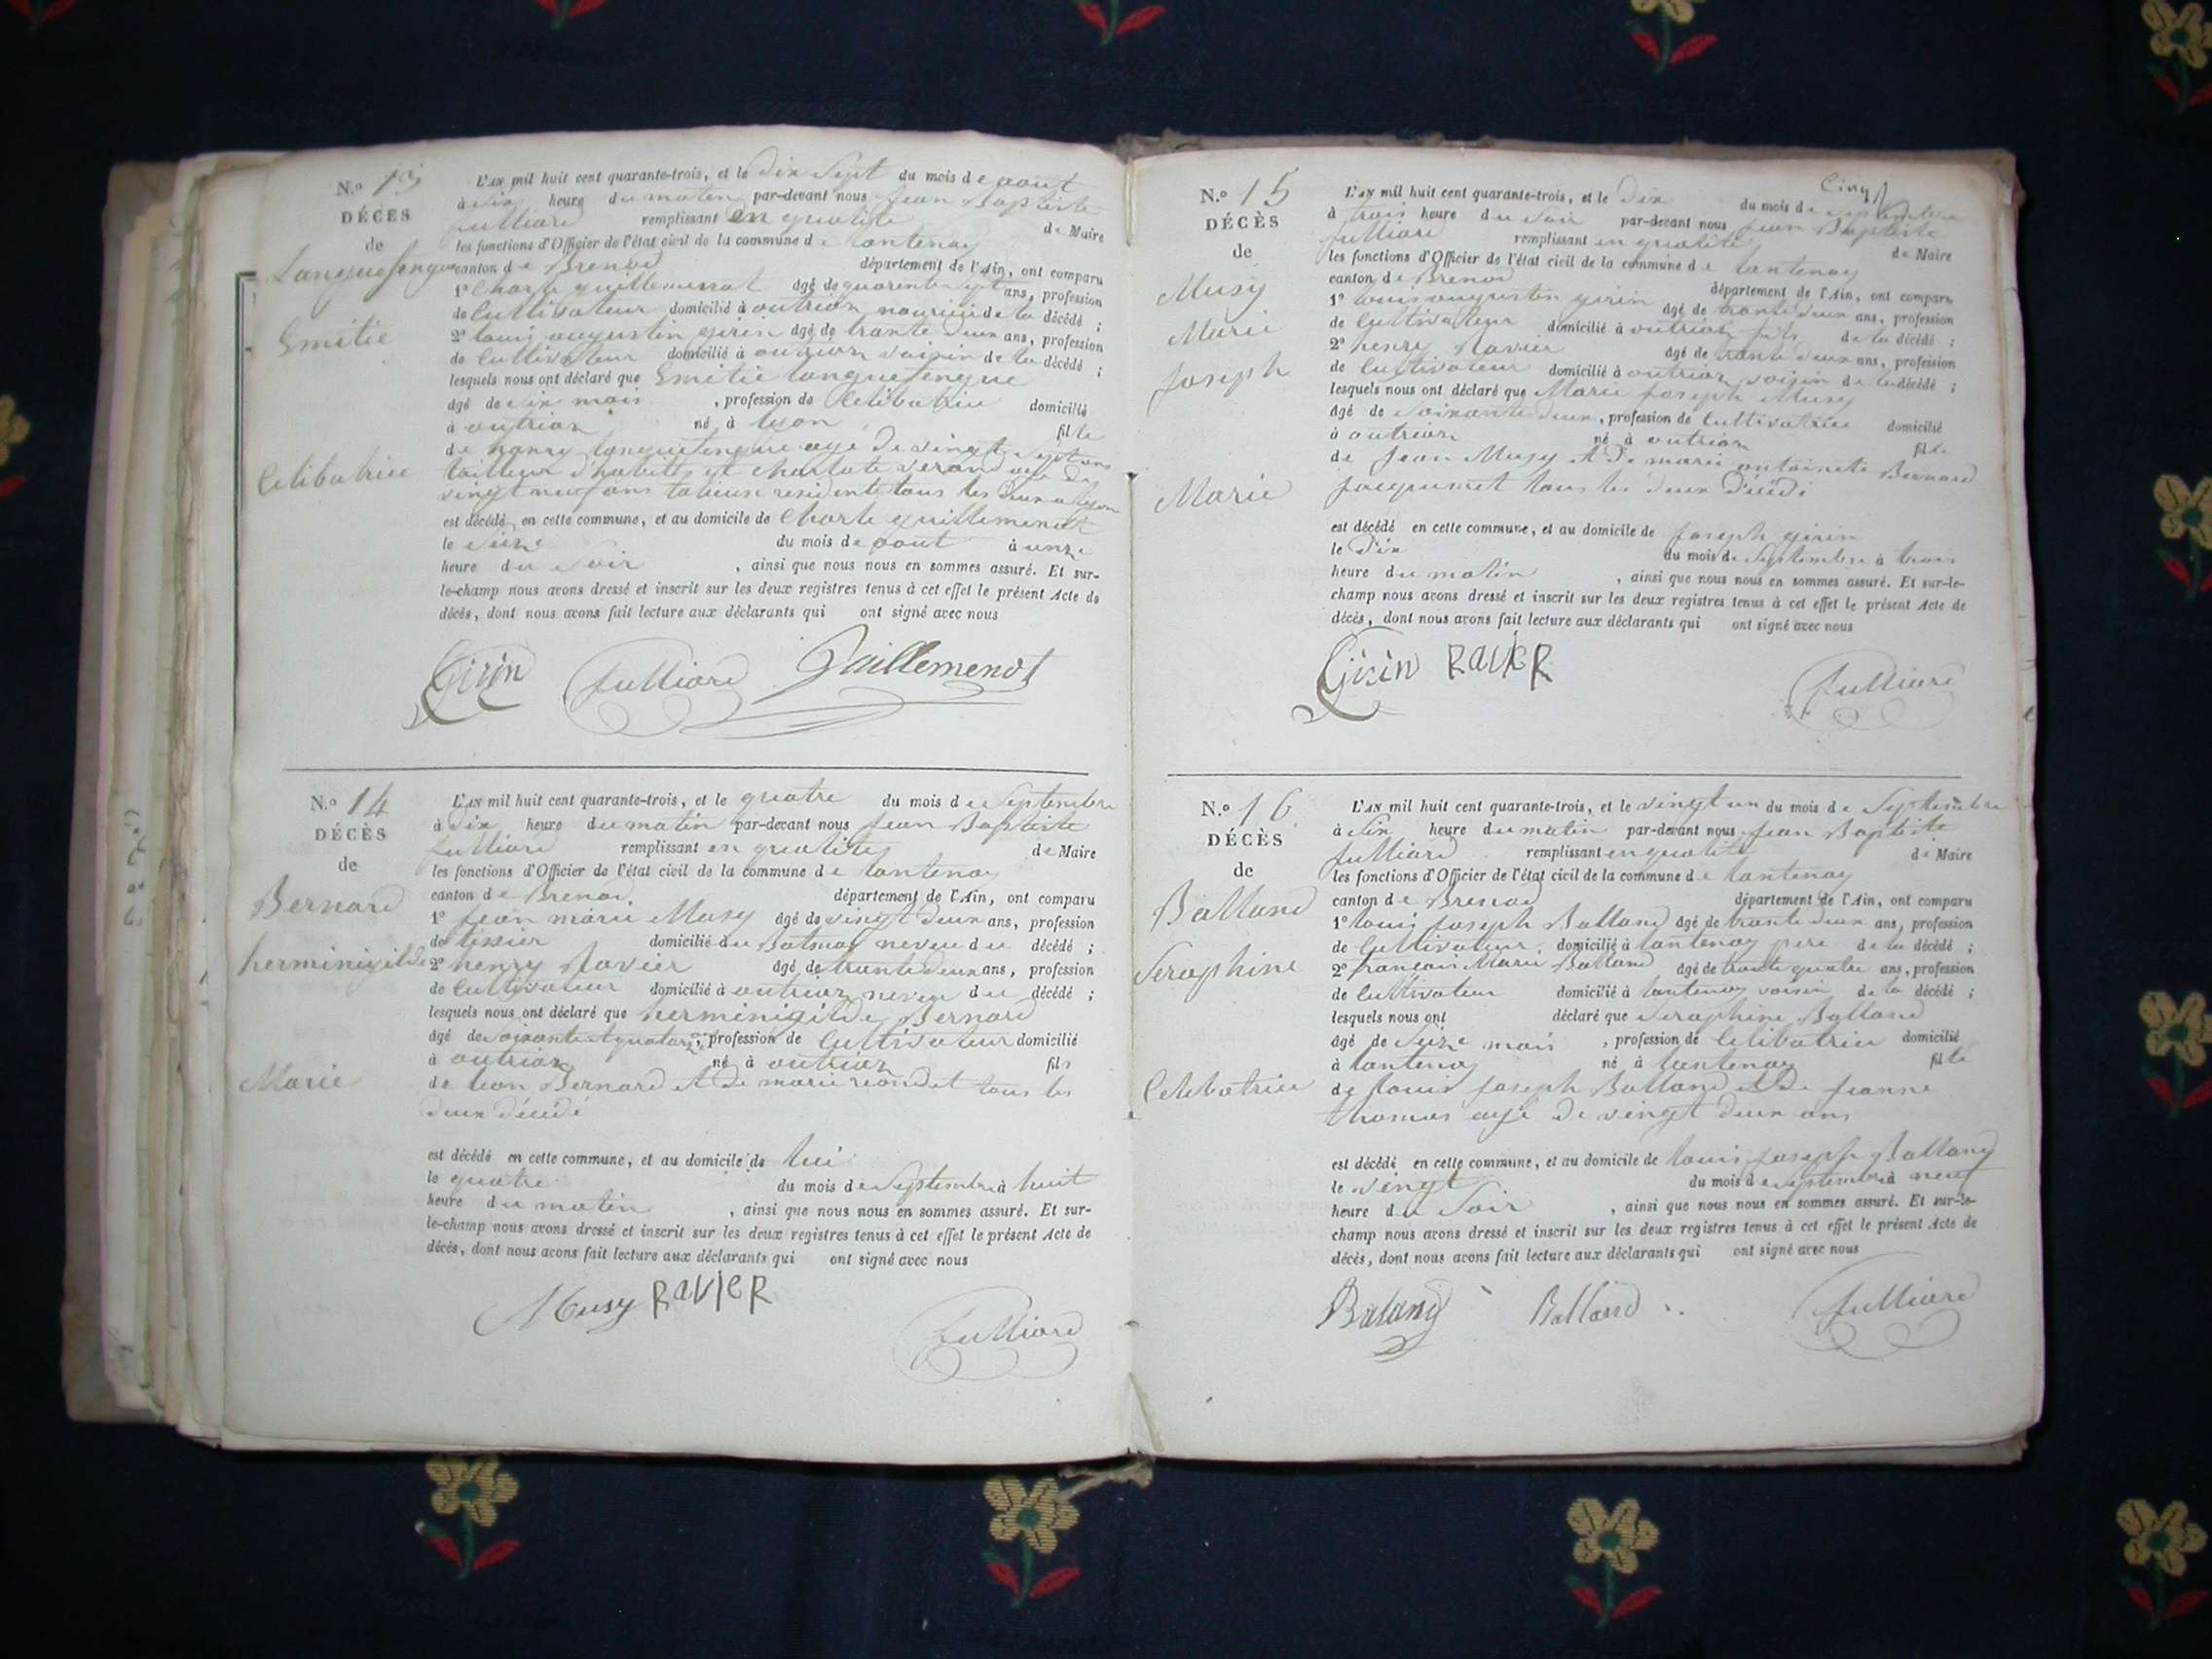 N.o 13
DÉCÈS
de
Languefengue
Emilie
Celibatrice
L'AN mil huit cent quarante-trois, et le dix Sept du mois de aout
à Six heure du matin par-devant nous Jean Baptiste
Julliard remplissant en qualité de Maire
les fonctions d'Officier de l'état civil de la commune de Lantenay
canton de Brenod département de l'Ain, ont comparu
1o Charle guillemenot âgé de quarente Sept ans, profession
de Cultivateur domicilié à outriaz nouricié de la décédé ;
2o louis augustin girin âgé de trante deux ans, profession
de Cultivateur domicilié à outriaz voisin de la décédé ;
lesquels nous ont déclaré que Emilie languefengue
âgé de Six mois , profession de Celibatrice domicilié
à outriaz né à lyon fille
de hanry languefengue agé de vingt Sept ans
tailleur d'habilts et Charlote agé de
vingt neuf ans residente tous les deux a lyon
est décédé en cette commune, et au domicile de Charle guillemenot
le Seize du mois de aout à unze
heure du Soir , ainsi que nous nous en sommes assuré. Et sur-
le-champ nous avons dressé et inscrit sur les deux registres tenus à cet effet le présent Acte de
décès, dont nous avons fait lecture aux déclarants qui ont signé avec nous
Girin Julliard Guillemenot
N.o 14
DÉCÈS
de
Bernard
herminigilde
Marie
L'AN mil huit cent quarante-trois, et le quatre du mois de Septembre
à dix heure du matin par-devant nous Jean Baptiste
Julliard remplissant en qualité de Maire
les fonctions d'Officier de l'état civil de la commune de Lantenay
canton de Brenod département de l'Ain, ont comparu
1o Jean marie Musy âgé de vingt deux ans, profession
de tissier domicilié du Balmay neveu du décédé ;
2o henry Ravier âgé de trante deux ans, profession
de Cultivateur domicilié à outriaz neveu du décédé ;
lesquels nous ont déclaré que herminigilde Bernard
âgé de Soixante et quatorze ans, profession de Cultivateur domicilié
à outriaz né à outriaz fils
de leon Bernard et de marie reondet tous les
deux décédé
est décédé en cette commune, et au domicile de lui
le quatre du mois de Septembre à huit
heure du matin , ainsi que nous nous en sommes assuré. Et sur-
le-champ nous avons dressé et inscrit sur les deux registres tenus à cet effet le présent Acte de
décès, dont nous avons fait lecture aux déclarants qui ont signé avec nous
Musy RAVIER
Julliard
Cinq
N.o 15
DÉCÈS
de
Musy
Marie
Joseph
Marie
L'AN mil huit cent quarante-trois, et le Dix du mois de Septembre
à trois heure du Soir par-devant nous Jean Baptiste
Julliard remplissant en qualité de Maire
les fonctions d'Officier de l'état civil de la commune de Lantenay
canton de Brenod département de l'Ain, ont comparu
1o louis augustin girin âgé de trante deux ans, profession
de Cultivateur domicilié à outriaz fils de la décédé ;
2o henry Ravier âgé de trante deux ans, profession
de Cultivateur domicilié à outriaz voisin de la décédé ;
lesquels nous ont déclaré que Marie Joseph Musy
âgé de Soixante deux , profession de Cultivatrice domicilié
à outriaz né à outriaz fille
de Jean Musy et de marie antoinete Bernard
Jacquemet tous les deux décédé
est décédé en cette commune, et au domicile de Joseph girin
le Dix du mois de Septembre à trois
heure du matin , ainsi que nous nous en sommes assuré. Et sur-le-
champ nous avons dressé et inscrit sur les deux registres tenus à cet effet le présent Acte de
décès, dont nous avons fait lecture aux déclarants qui ont signé avec nous
Girin RAVIER
Julliard
N.o 16
DÉCÈS
de
Balland
Seraphine
Celibatrice
L'AN mil huit cent quarante-trois, et le vingt un du mois de Septembre
à Six heure du matin par-devant nous Jean Baptiste
Julliard remplissant en qualité de Maire
les fonctions d'Officier de l'état civil de la commune de Lantenay
canton de Brenod département de l'Ain, ont comparu
1o louis Joseph Balland âgé de trante deux ans, profession
de Cultivateur domicilié à lantenay pere de la décédé ;
2o francois Marie Balland âgé de trante quatre ans, profession
de Cultivateur domicilié à lantenay voisin de la décédé ;
lesquels nous ont déclaré que Seraphine Balland
âgé de Seize mois , profession de Celibatrice domicilié
à lantenay né à lantenay fille
de louis Joseph Balland et de Jeanne
thomas agé de vingt deux ans
est décédé en cette commune, et au domicile de louis Joseph Balland
le vingt du mois de Septembre à neuf
heure du Soir , ainsi que nous nous en sommes assuré. Et sur-le-
champ nous avons dressé et inscrit sur les deux registres tenus à cet effet le présent Acte de
décès, dont nous avons fait lecture aux déclarants qui ont signé avec nous
Baland Balland Julliard